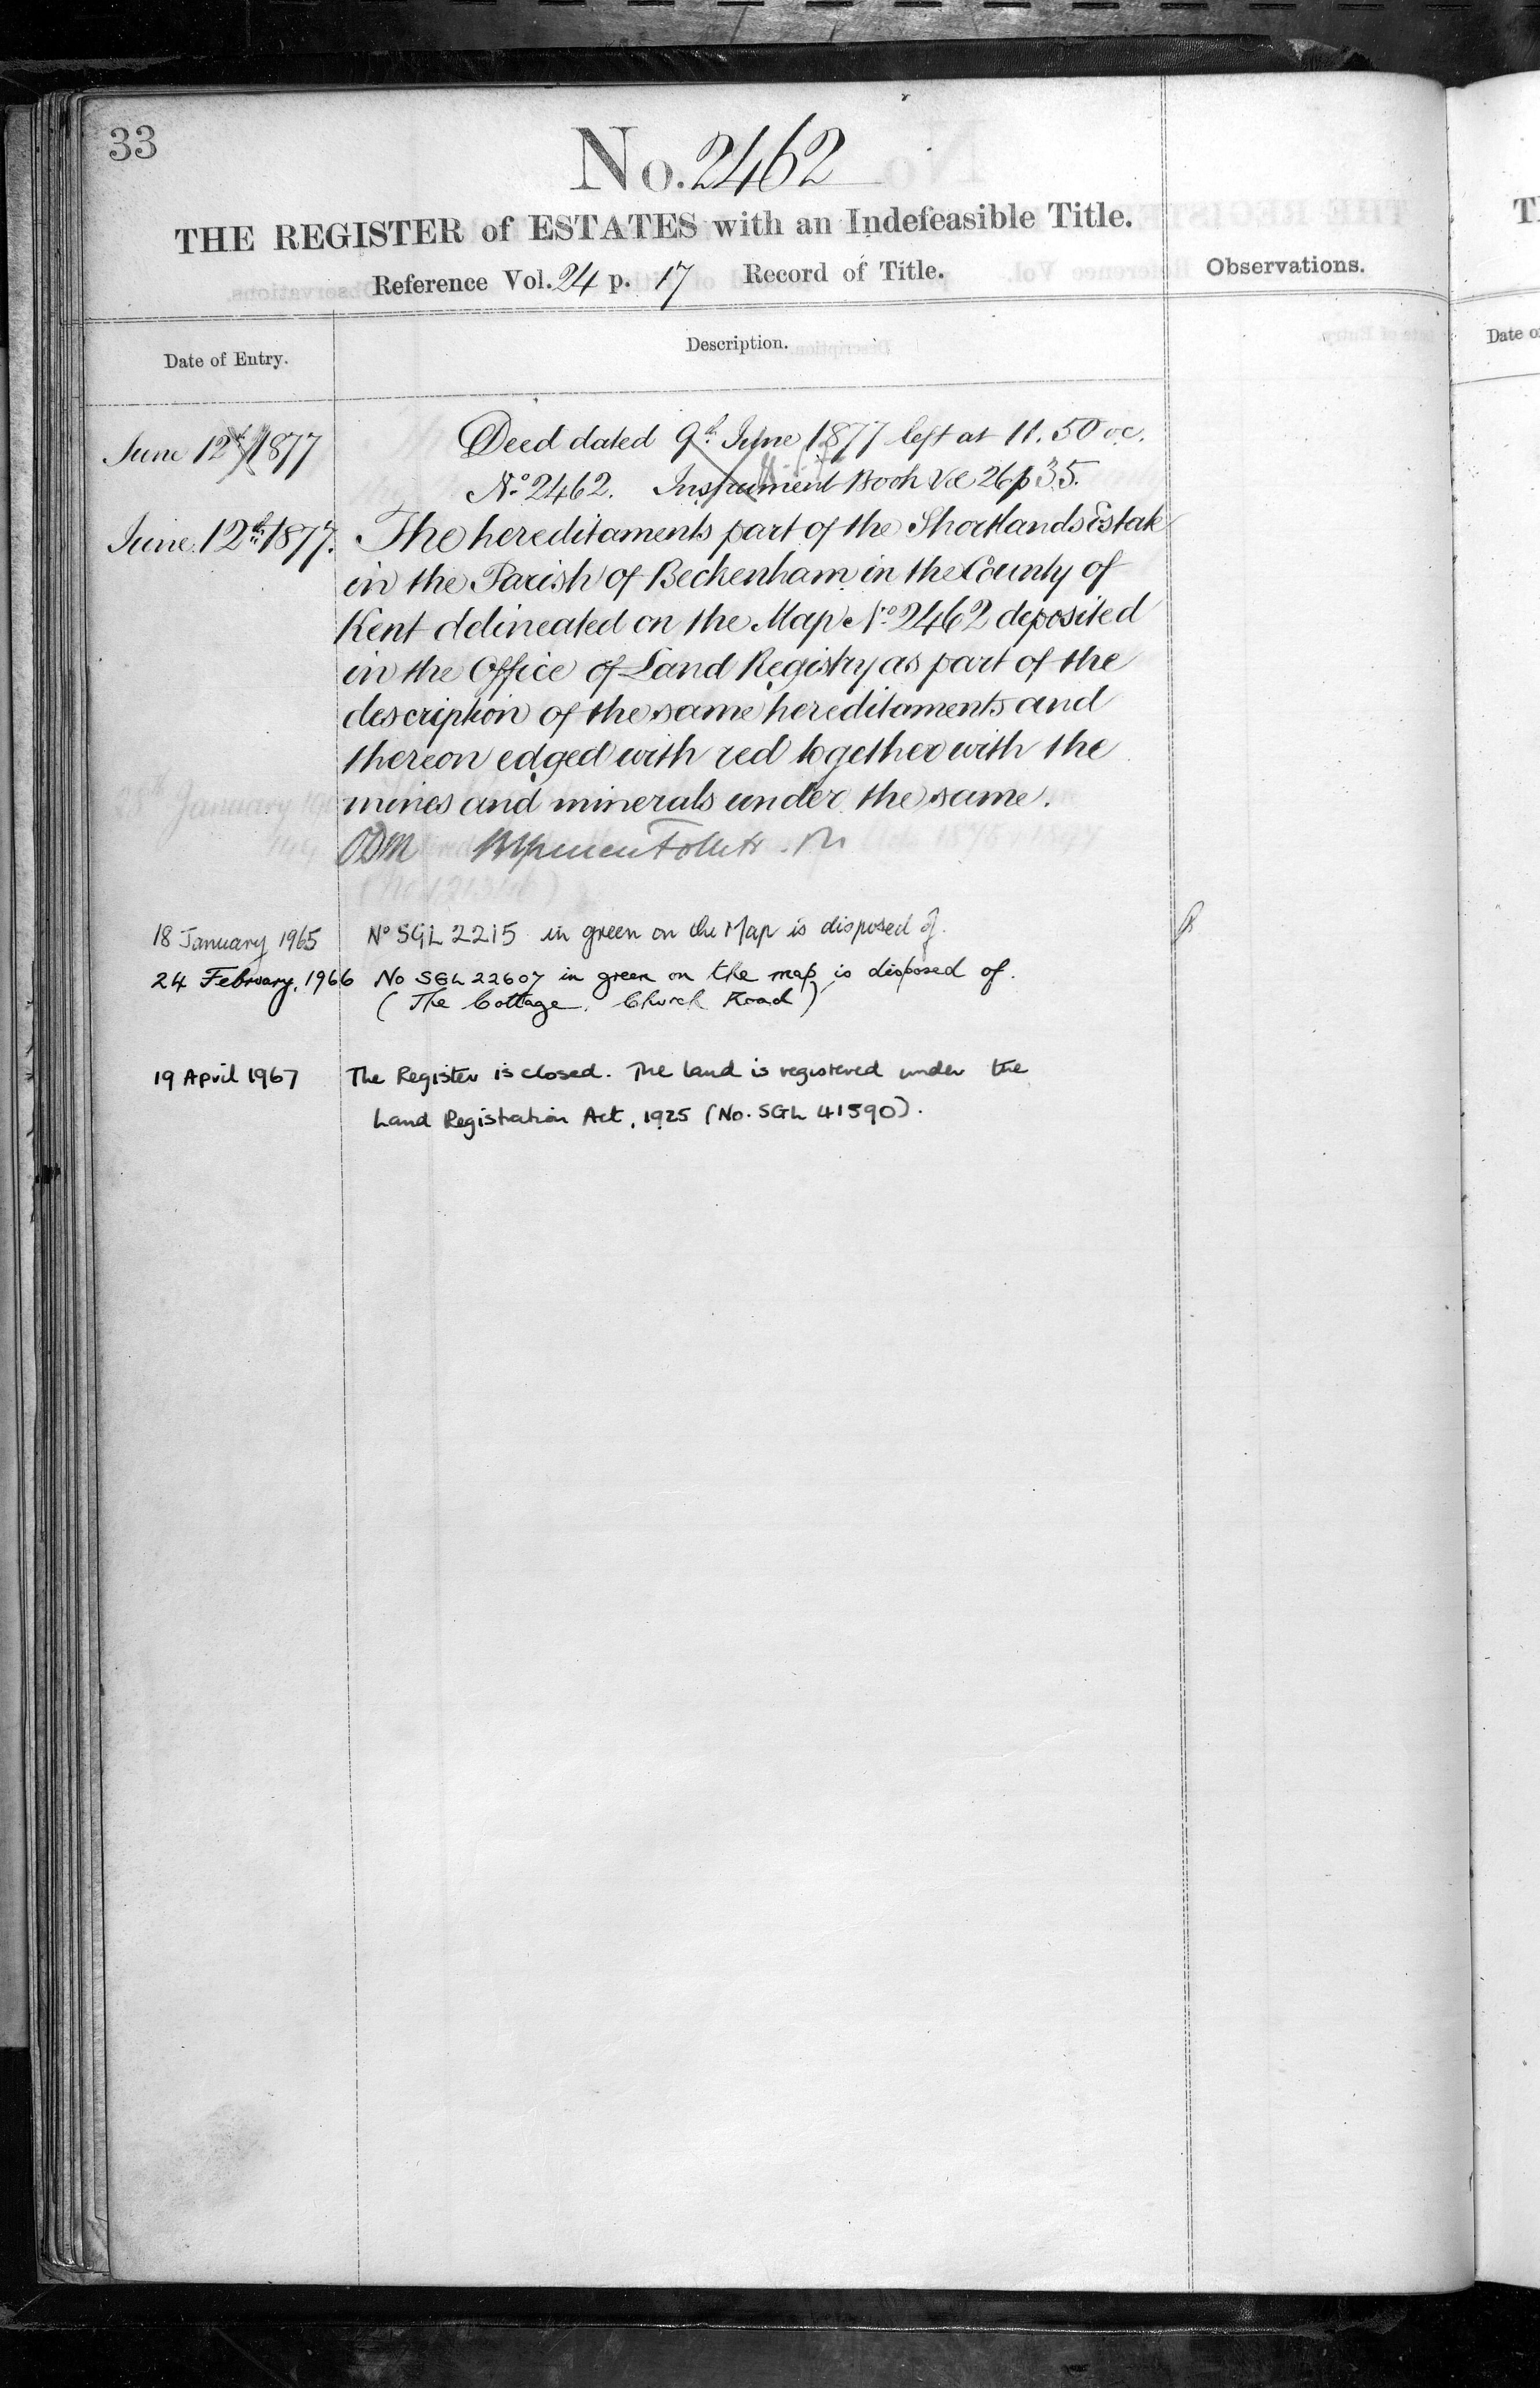 33
No. 2462
THE REGISTER of ESTATES with an Indefeasible Title.
Reference Vol. 24 p. 17 Record of Title.
Observations.
Date of Entry.
Description.
June 12th 1877
Deed dated 9th June 1877 left at 11.50 oc.
No 2462. Instrument Book Vol 26 p 35.
June 12th 1877.
The hereditaments part of the Shortlands Estate
in the Parish of Beckenham in the County of
Kent delineated on the Map No 2462 deposited
in the Office of Land Registry as part of the
description of the same hereditaments and
thereon edged with red together with the
mines and minerals under the same.
18 January 1965 No SGL 2215 in green on the Map is disposed of.
24 February, 1966 No SGL 22607 in green on the map is disposed of.
(The Cottage, Church Road)
19 April 1967 The Register is closed. The land is registered under the
Land Registration Act, 1925 (No. SGL 41590).
T
Date o